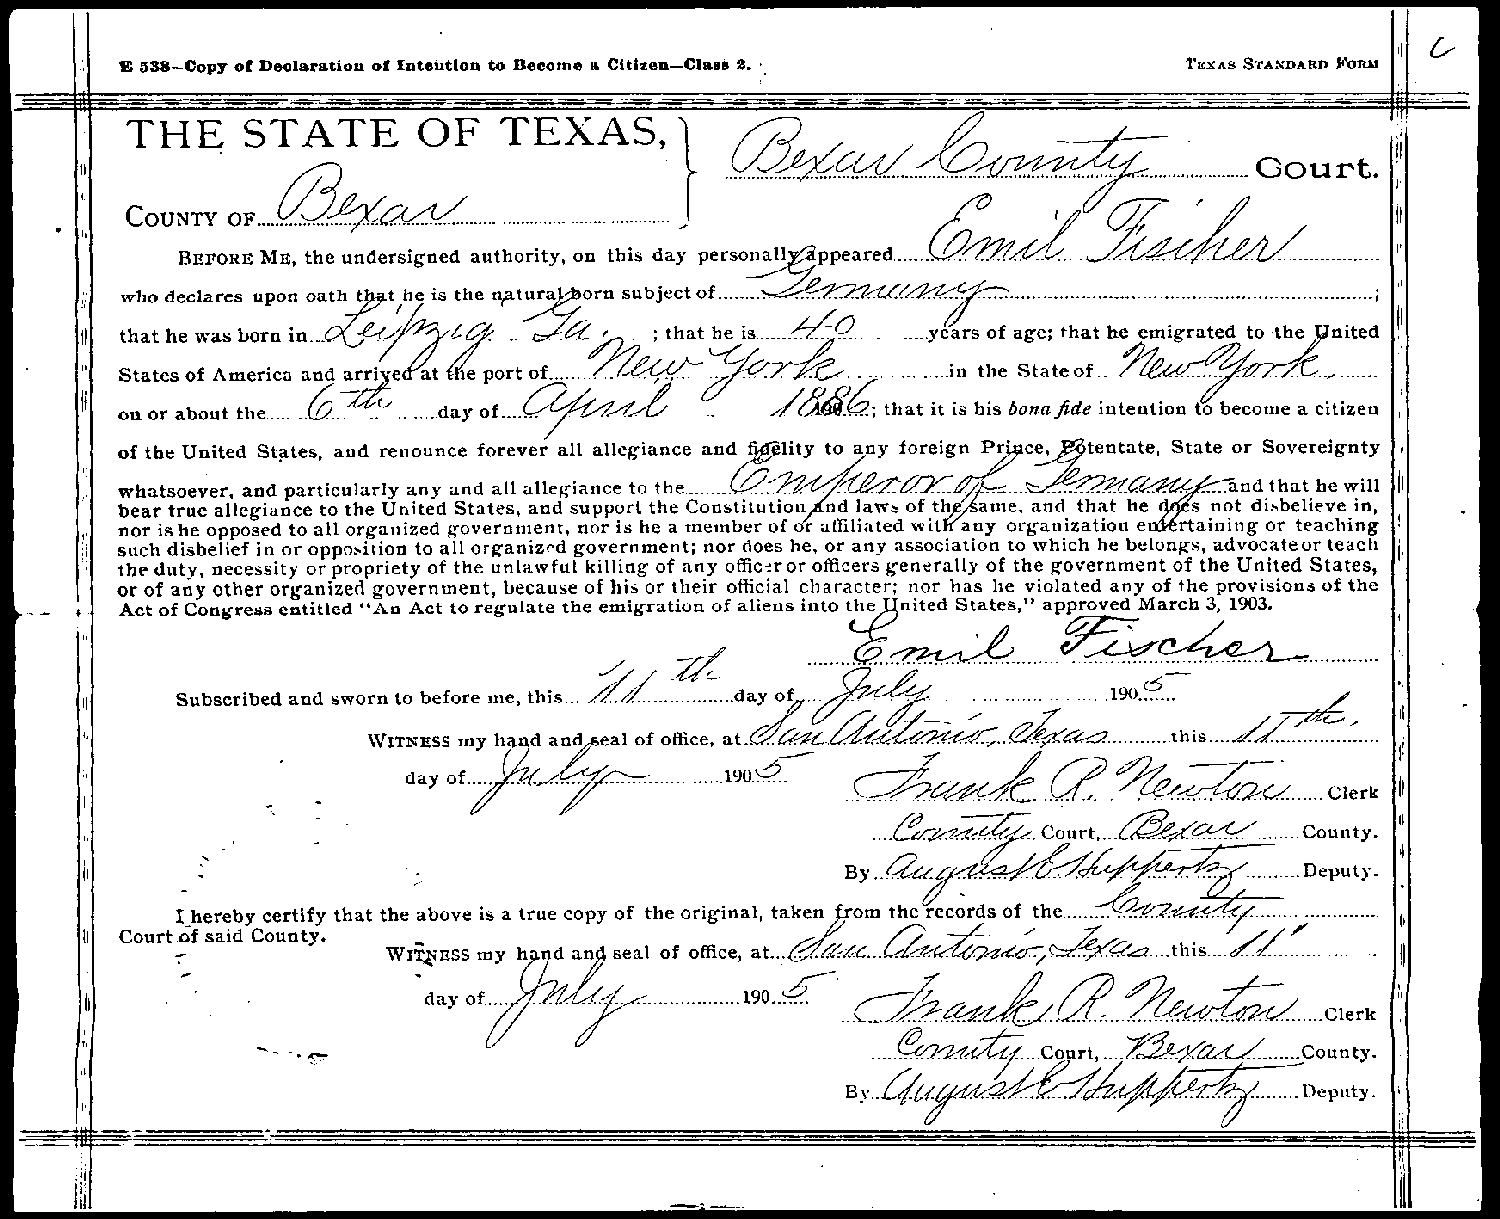 E 538—Copy of Declaration of Intention to Become a Citizen—Class 2.
TEXAS STANDARD FORM
THE STATE OF TEXAS,
Bexar County Court.
COUNTY OF Bexar
BEFORE ME, the undersigned authority, on this day personally appeared Emil Fischer
who declares upon oath that he is the natural born subject of Germany ;
that he was born in Leipzig Ga. ; that he is 40 years of age; that he emigrated to the United
States of America and arrived at the port of New York in the State of New York
on or about the 6th day of April 1886; that it is his bona fide intention to become a citizen
of the United States, and renounce forever all allegiance and fidelity to any foreign Prince, Potentate, State or Sovereignty
whatsoever, and particularly any and all allegiance to the Emperor of Germany and that he will
bear true allegiance to the United States, and support the Constitution and laws of the same, and that he does not disbelieve in,
nor is he opposed to all organized government, nor is he a member of or affiliated with any organization entertaining or teaching
such disbelief in or opposition to all organized government; nor does he, or any association to which he belongs, advocate or teach
the duty, necessity or propriety of the unlawful killing of any officer or officers generally of the government of the United States,
or of any other organized government, because of his or their official character; nor has he violated any of the provisions of the
Act of Congress entitled "An Act to regulate the emigration of aliens into the United States," approved March 3, 1903.
Emil Fischer
Subscribed and sworn to before me, this 11th day of July 1905
WITNESS my hand and seal of office, at San Antonio, Texas this 11th.
day of July 1905
Frank R. Newton Clerk
County Court, Bexar County.
By August E Huppertz Deputy.
I hereby certify that the above is a true copy of the original, taken from the records of the County
Court of said County.
WITNESS my hand and seal of office, at San Antonio, Texas this 11"
day of July 1905
Frank R. Newton Clerk
County Court, Bexar County.
By August E Huppertz Deputy.